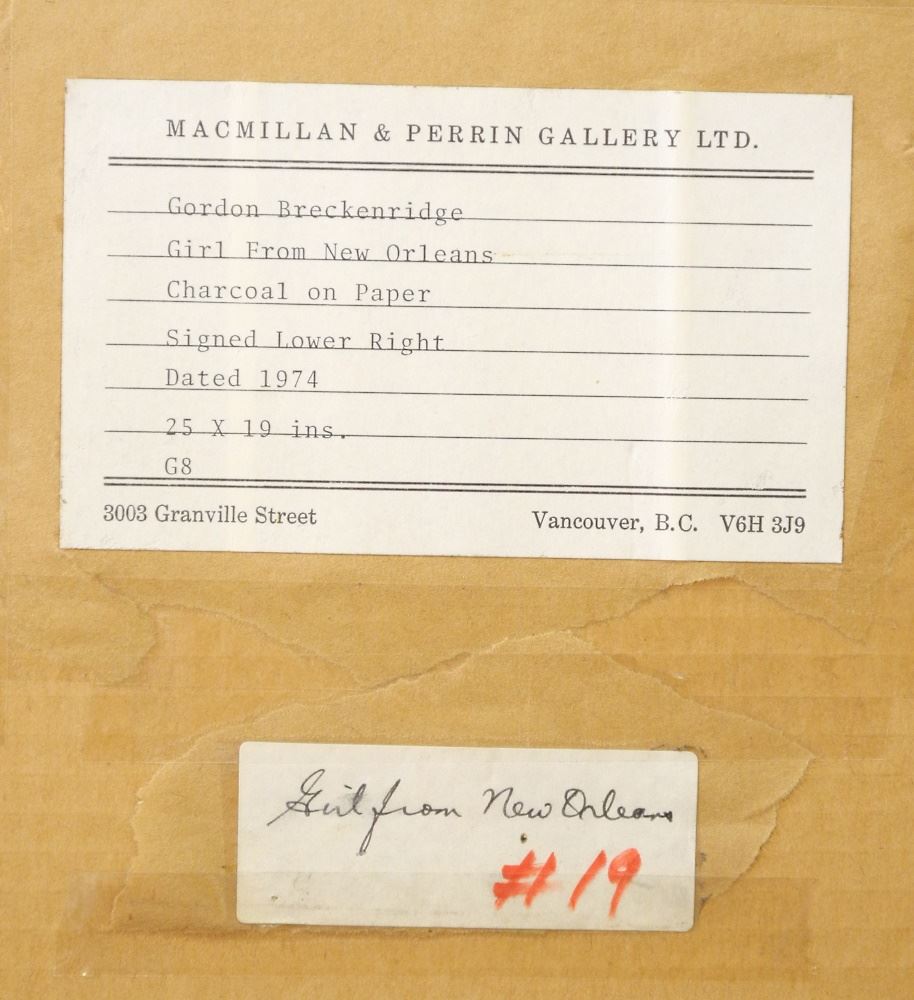 MACMILLAN & PERRIN GALLERY LTD.
Gordon Breckenridge
Girl From New Orleans
Charcoal on Paper
Signed Lower Right
Dated 1974
25 X 19 ins.
G8
3003 Granville Street Vancouver, B.C. V6H 3J9
Girl from New Orleans
#19